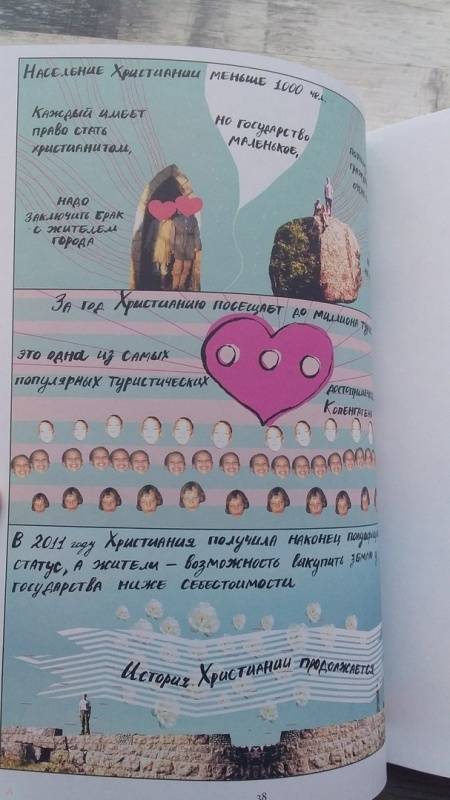 Население Христиании меньше 1000 чел.
Каждый имеет
право стать
христианитом,
надо
заключить брак
с жителем
города
но государство
маленькое,
За год Христианию посещает до миллиона
это одна из самых
популярных туристических
Копенгагена
В 2011 году Христиания получила наконец
статус, а жители – возможность выкупить земли у
государства ниже себестоимости
История Христиании продолжается
38